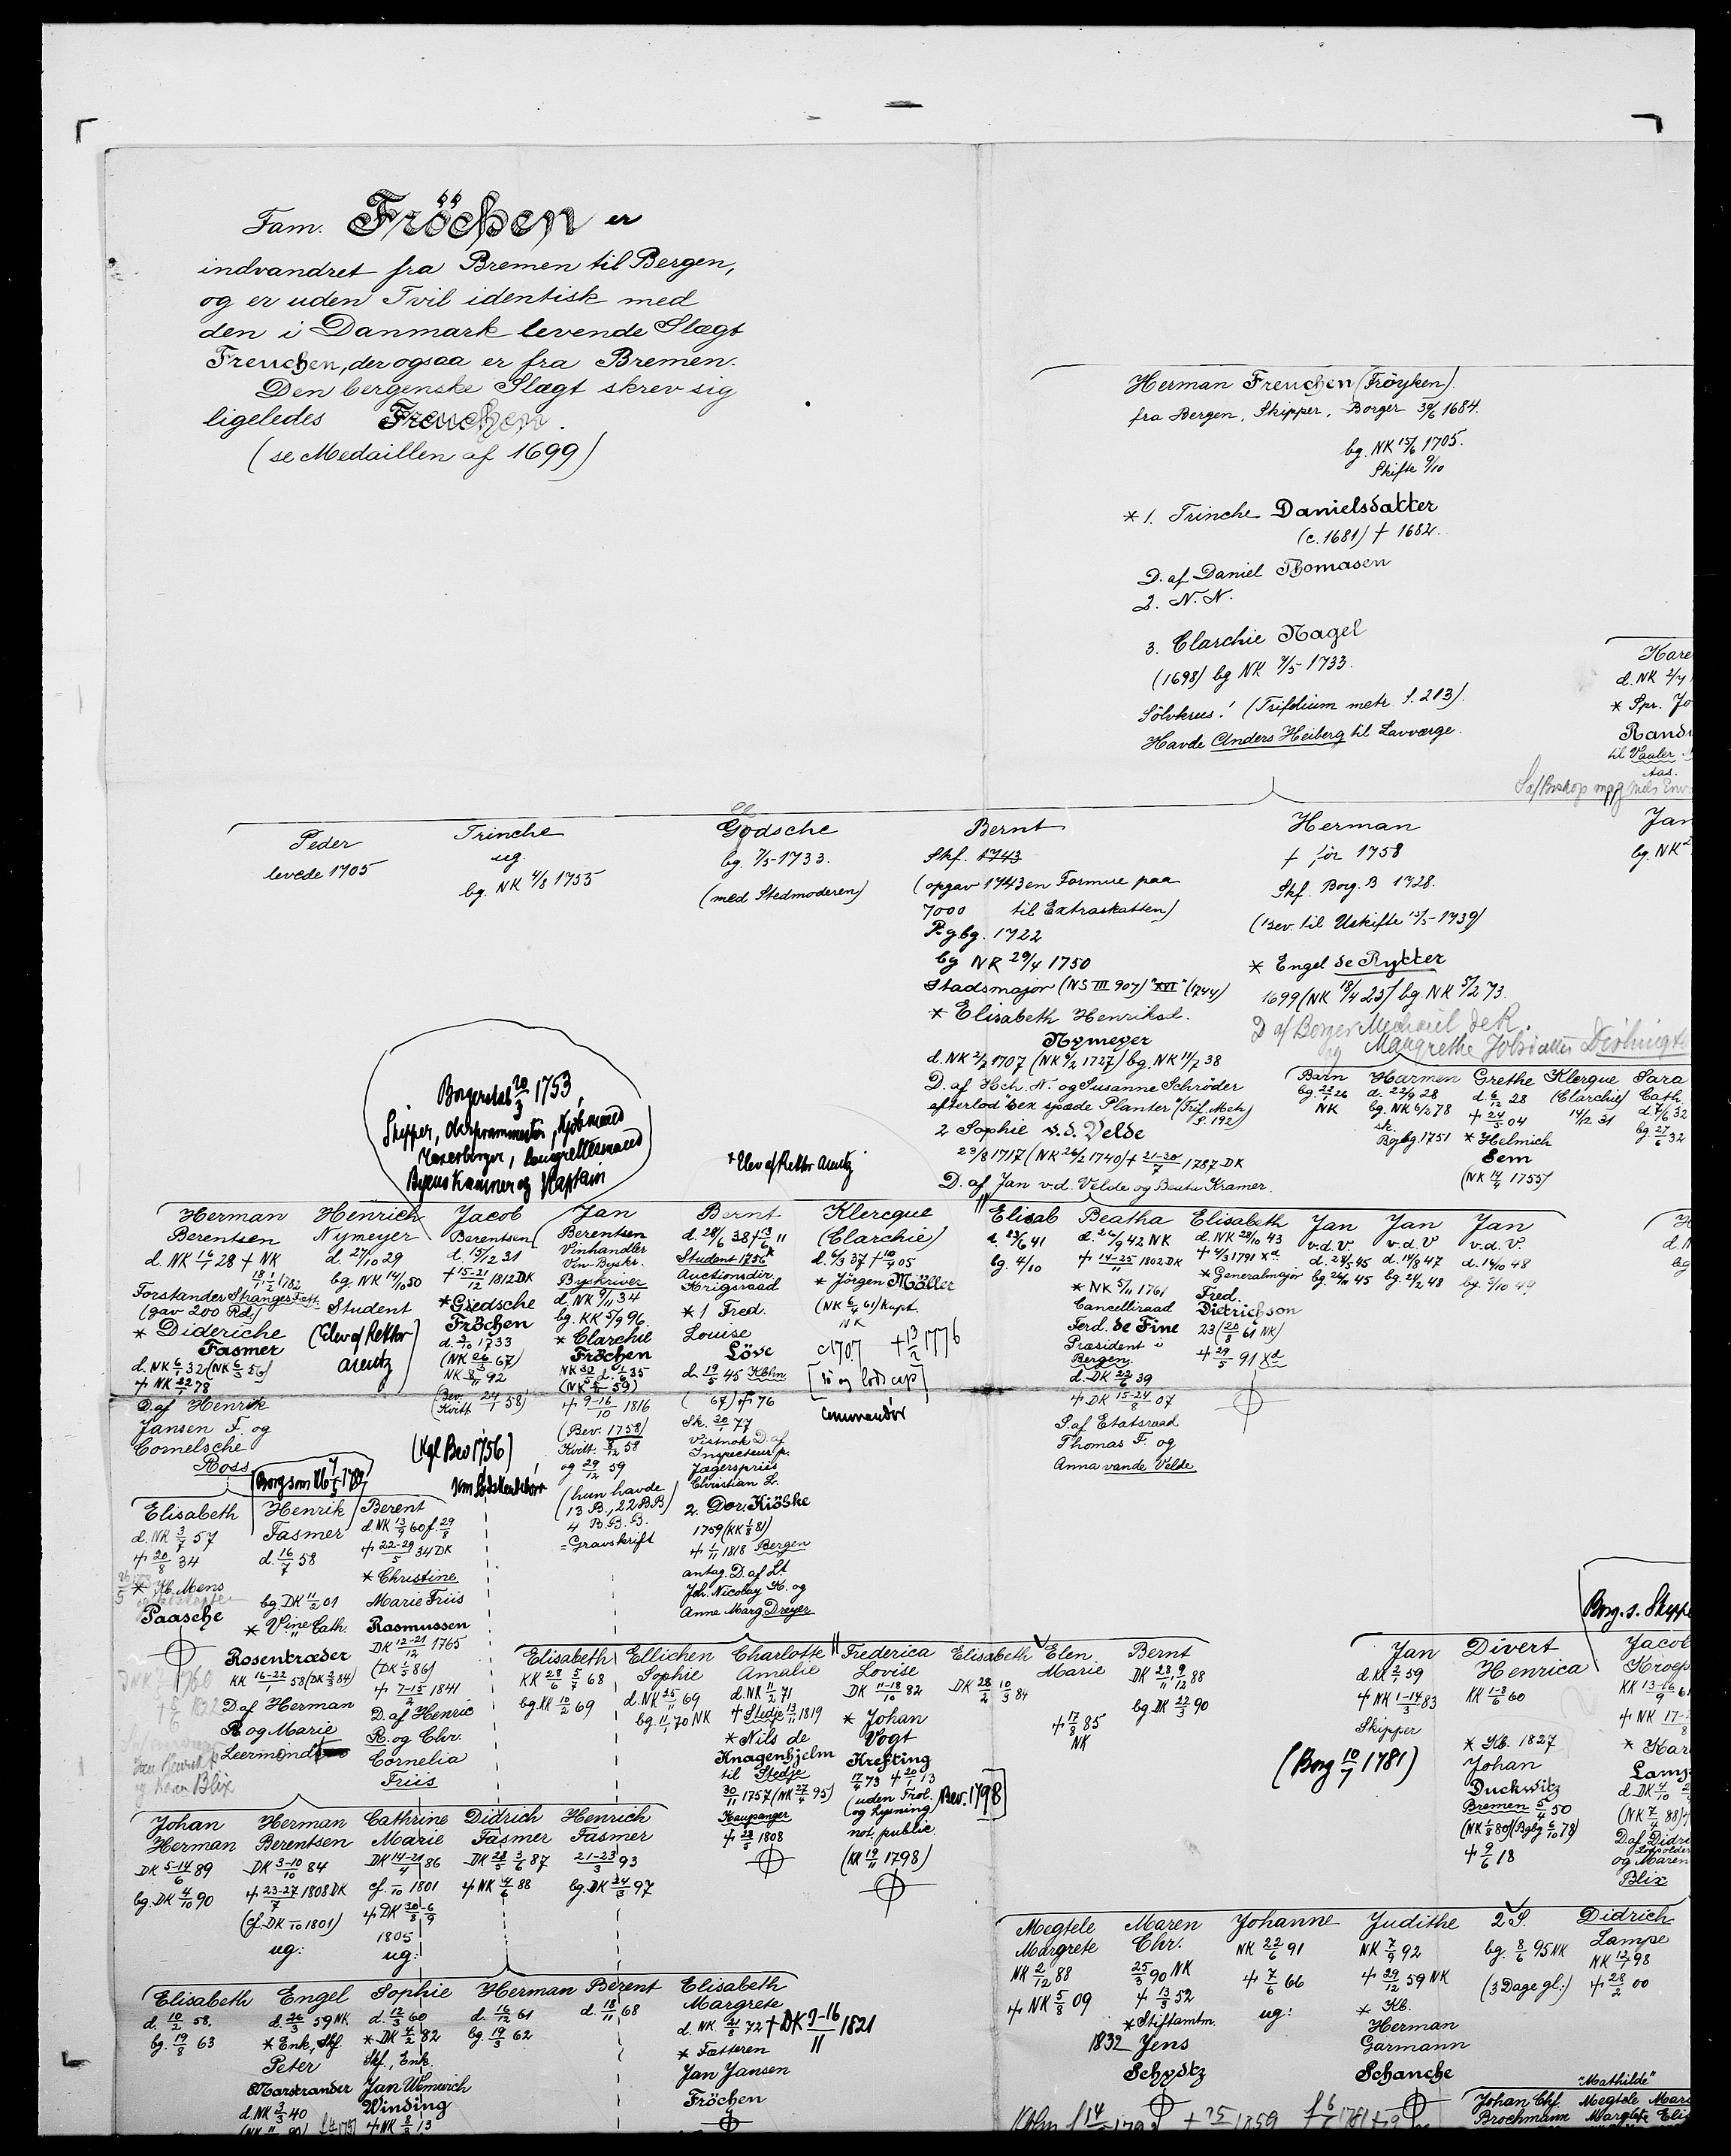 Fam. Fröchen er
indvandret fra Bremen til Bergen,
og er uden Tvil identisk med
den i Danmark levende Slægt
Freuchen, der ogsaa er fra Bremen.
Den bergenske Slægt skrev sig
ligeledes Freuchen.
(se Medaillen af 1699)
Herman Freuchen (Fröyken).
fra Bergen, Skipper, Borger 30/6 1684.
bg. NK 15/6 1705.
Skifte 9/10
* 1. Trinche Danielsdatter
(c. 1681) † 1682.
D. af Daniel Thomasen
2. N. N.
3. Clarchie Nagel
(1698) bg NK 7/5 1733.
Sölvkrus! (Trifolium metr. S. 213).
Havde Anders Heiberg til Lavværge.
d. NK 2/7
* Spr. Jo
til Vaaler
Peder
levede 1705
Trinche
ug.
bg. NK 4/8 1755
Godsche
bg. 7/5-1733.
(med Stedmoderen)
Bernt
Skf. 1743
(opgav 1743 en Formue paa
7000 til Extraskatten)
Rgbg. 1722
bg NK 29/4 1750
Stadsmajor (NS III 907) "XVI" (1744)
* Elisabeth Henriksd.
Nymeyer
d. NK 2/7 1707 (NK 9/2 1727) bg. NK 11/7 38
D. af Hch. N. og Susanne Schröder
efterlod "sex spæde Planter" (Trif. Meth.
S. 192)
2 Sophie v. d. Velde
23/8 1717 (NK 26/2 1740) † 21-30/7 1787 DK
D. af Jan v. d. Velde og Beata Kramer.
Herman
† før 1758
Skf. Borg. B 1728.
(Bev. til Uskifte 15/5-1739)
* Engel de Rytter
1699 (NK 18/4 25) bg. NK 5/2 73.
D af Borger Michael de R.
og Margrethe
Jan
bg. NK
Barn
bg. 22/7 26
NK
Harmen
d. 22/9 28
bg. NK 6/2 78
sk.
Bgbg 1751
Grethe
d. 6/12 28
† 24/5 04
* Helmich
Sem
(NK 14/4 1755)
Klerque
(Clarchie)
14/12 31
Sara
Cath.
d. 7/6 32
bg. 27/6 32
Borgerskab 20/3 1753,
Skipper, Kjøbmand
Byens Kæmner og Kaptain
* Elev af Rektor Arentz
Herman
Berentsen
d. NK 16/1 28 † NK
18/7 1/2 1782
Forstander Stranges Fatt.
(gav 200 Rd)
* Dideriche
Fasmer
d. NK 6/1 32 (NK 6/3 56)
† NK 22/1 78
D. af Henrik
Jansen F. og
Cornelsche
Ross
Henrich
Nymeyer
d. 27/10 29
bg. NK 14/10 50
Student
(Elev af Rektor
Arentz)
Jacob
Berentsen
d. 15/12 31
† 15-21/12 1812 DK
* Giedsche
Fröchen
d. 3/10 1733
NK 8/11 92
(Bev. 24/1 58)
Kvitt.
(Kgl Bev 1756)
Jan
Berentsen
Vinhandler
Vin-Byskr.
Byskriver
d. NK 9/11 34
bg. KK 5/9 96.
* Clarchie
Fröchen
† 9-16/10 1816
(Bev. 1758)
Kvitt. 8/12 58
og 29/12 59
(hun havde
13 B., 22 BB)
4 B. B. B.
= Gravskrift
Bernt
d. 28/6 38 †
Student 1756
Auctionsdir.
Krigsraad
* 1 Fred.
Louise
Löve
d. 19/5 45 Kbhn
( 67) † 76
Sk. 30/1 77
vistnok D. af
Inspecteur p.
Jægerspriis
Christian L.
2. Dor. Kiöbke
1759 (KK 1/8 81)
† 1/11 1818 Bergen
antag. D. af Lt
Joh. Nicolay K. og
Anne Marg Dreyer
Klercque
(Clarchie)
d. 6/3 37 † 10/9 05
* Jörgen Möller
(NK 6/4 61) Kapt.
NK
c 1707 † 13/2 1776
Commandør
Elisab
d. 23/6 41
bg. 4/10
Beatha
d. 26/9 42 NK
† 14-25/11 1802 DK
* NK 5/11 1761
Cancelliraad
Ferd. de Fine
Præsident i
Bergen.
d. DK 22/6 39
† DK 15-24/8 07
S. af Etatsraad
Thomas F. og
Anna vande Velde
Elisabeth
d. NK 28/10 43
† 4/3 1791
* Generalmajor
Fred.
Dietrichson
23 (20/8 61 NK)
† 29/5 91
Jan
v. d. V.
d. 24/5 45
bg. 24/6 45
Jan
v. d. V
d. 14/9 47
bg. 2/2 48
Jan
v. d. V.
d. 14/10 48
bg. 3/10 49
Elisabeth
d. NK 3/7 57
† 20/8 34
* Kb. Mens
Paasche
Henrik
Fasmer
d. 16/7 58
bg. DK 11/2 01
* Vine Cath.
Rosentræder
KK 16-22/1 58 (DK 2/3 84)
D. af Herman
R og Marie
Berent
d. NK 13/9 60 f. 29/8
† 22-29/5 34 DK
* Christine
Marie Friis
Rasmussen
DK 12-21/12 1765
(DK 1/5 86)
† 7-15/2 1841
D. af Henric
R. og Chr.
Cornelia
Friis
Elisabeth
KK 28/6 5/7 68
bg. KK 10/2 69
Ellichen
Sophie
d. NK 25/11 69
bg. 11/1 70 NK
Charlotte
Amalie
d. NK 11/2 71
† Stedje 13/11 1819
* Nils de
Knagenhjelm
til Stedje
30/11 1757 (NK 27/4 95)
Kaupanger
† 28/5 1808
Frederica
Lovise
DK 11-18/10 82
* Johan
Vogt
Krefting
17/6 73 † 20/1 13
(uden Trol.
og Lysning)
not. public.
(KK 19/11 1798)
Bev. 1798
Elisabeth
DK 28/2 10/3 84
Elen
Marie
† 17/8 85
NK
Bernt
DK 28/11 9/12 88
bg. DK 22/3 90
Borg. s. Skippe
Jan
d. NK 2/1 59
† NK 1-14/3 83
Skipper
(Borg 10/7 1781)
Divert
Henrica
KK 1-8/6 60
* Kb. 1827
Johan
Duckwitz
Bremen 5/4 50
(NK 1/8 80) (Bgbg 6/10 78)
† 9/6 18
Jacob
KK 13-16/9
† NK 17-
* Kar
Lamp
d. DK 4/10
(NK 7/4 88)
D. af Didri
og Maren
Blix
Johan
Herman
DK 5-14/6 89
bg. DK 4/10 90
Herman
Berentsen
DK 3-10/10 84
† 23-27/7 1808 DK
(cf. DK /10 1801)
ug:
Cathrine
Marie
DK 14-21/4 86
cf. /10 1801
† DK 30/8-6/9
1805
ug:
Didrich
Fasmer
DK 28/5 3/6 87
† NK 4/6 88
Henrich
Fasmer
21-23/3 93
bg. DK 24/3 97
Elisabeth
d. 10/2 58.
bg. 19/8 63
Engel
d. 26/3 59 NK.
* Enk., Skf.
Peter
Marstrander
d. NK 3/3 40
Sophie
d. 12/3 60
* DK 4/2 82
Skf., Enk.
Jan Wemmich
Winding
† NK 8/8 13
Herman
d. 16/12 61
bg. 19/3 62
Berent
d. 18/11 68
Elisabeth
Margrete
d. NK 21/8 72 † DK 9-16/11 1821
* Fætteren
Jan Jansen
Fröchen
Megtele
Margrete
NK 2/12 88
† NK 5/8 09
Maren
Chr.
25/3 90 NK
† 13/3 52
* Stiftamtm.
1832 Jens
Schydtz
Johanne
NK 22/6 91
† 7/6 66
ug:
Judithe
NK 7/9 92
† 29/12 59 NK
* Kb.
Herman
Garmann
Schanche
2 S.
bg. 8/6 95 NK
(3 Dage gl.)
Didrich
Lampe
NK 12/7 98
† 28/2 00
"Mathilde"
Johan Chf.
Brochmann
Megtele
Margrete